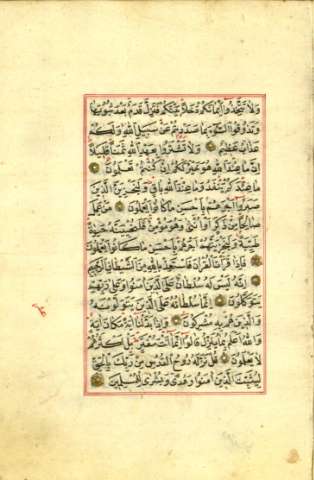 وَلَا تَتَّخِذُوا أَيْمَانَكُمْ دَخَلًا بَيْنَكُمْ فَتَزِلَّ قَدَمٌ بَعْدَ ثُبُوتِهَا
وَتَذُوقُوا السُّوءَ بِمَا صَدَدْتُمْ عَنْ سَبِيلِ اللهِ وَلَكُمْ
عَذَابٌ عَظِيمٌ وَلَا تَشْتَرُوا بِعَهْدِ اللهِ ثَمَنًا قَلِيلًا
إِنَّمَا عِنْدَ اللهِ هُوَ خَيْرٌ لَكُمْ إِنْ كُنْتُمْ تَعْلَمُونَ
مَا عِنْدَكُمْ يَنْفَدُ وَمَا عِنْدَ اللهِ بَاقٍ وَلَنَجْزِيَنَّ الَّذِينَ
صَبَرُوا أَجْرَهُمْ بِأَحْسَنِ مَا كَانُوا يَعْمَلُونَ مَنْ عَمِلَ
صَالِحًا مِنْ ذَكَرٍ أَوْ أُنْثَى وَهُوَ مُؤْمِنٌ فَلَنُحْيِيَنَّهُ حَيٰوةً
طَيِّبَةً وَلَنَجْزِيَنَّهُمْ أَجْرَهُمْ بِأَحْسَنِ مَا كَانُوا يَعْمَلُونَ
فَإِذَا قَرَأْتَ الْقُرْآنَ فَاسْتَعِذْ بِاللهِ مِنَ الشَّيْطَانِ الرَّجِيمِ
إِنَّهُ لَيْسَ لَهُ سُلْطَانٌ عَلَى الَّذِينَ آمَنُوا وَعَلَى رَبِّهِمْ
يَتَوَكَّلُونَ إِنَّمَا سُلْطَانُهُ عَلَى الَّذِينَ يَتَوَلَّوْنَهُ
وَالَّذِينَ هُمْ بِهِ مُشْرِكُونَ وَإِذَا بَدَّلْنَا آيَةً مَكَانَ آيَةٍ
وَاللهُ أَعْلَمُ بِمَا يُنَزِّلُ قَالُوا إِنَّمَا أَنْتَ مُفْتَرٍ بَلْ أَكْثَرُهُمْ
لَا يَعْلَمُونَ قُلْ نَزَّلَهُ رُوحُ الْقُدُسِ مِنْ رَبِّكَ بِالْحَقِّ
لِيُثَبِّتَ الَّذِينَ آمَنُوا وَهُدًى وَبُشْرَى لِلْمُسْلِمِينَ